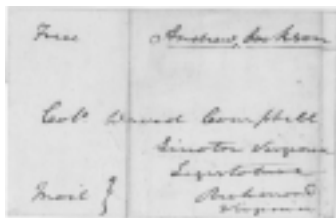 Free Andrew Jackson
Colo David Campbell
Virginia
Legislature
Mail Richmond
Virginia